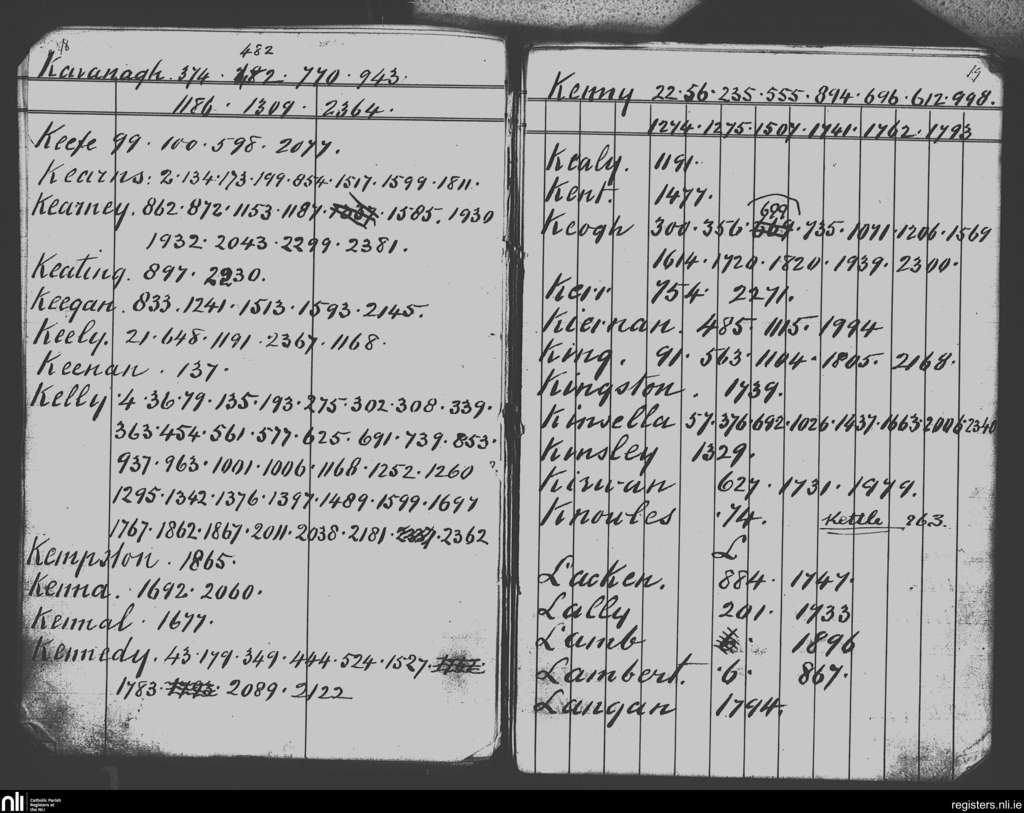 18
482
Kavanagh. 374 · 482 · 770 · 943 ·
1186 · 1309 · 2364 ·
Keefe 99 · 100 · 598 · 2077 ·
Kearns: 2 · 134 · 173 · 199 · 854 · 1517 · 1599 · 1811 ·
Kearney. 862 · 872 · 1153 · 1187 · 1585 · 1930
1932 · 2043 · 2299 · 2381 ·
Keating. 897 · 2230 ·
Keegan. 833 · 1241 · 1513 · 1593 · 2145 ·
Keely. 21 · 648 · 1191 · 2367 · 1168 ·
Keenan · 137 ·
Kelly · 4 · 36 · 79 · 135 · 193 · 275 · 302 · 308 · 339 ·
363 · 454 · 561 · 577 · 625 · 691 · 739 · 853 ·
937 · 963 · 1001 · 1006 · 1168 · 1252 · 1260
1295 · 1342 · 1376 · 1397 · 1489 · 1599 · 1697
1767 · 1862 · 1867 · 2011 · 2038 · 2181 · 2362
Kempston · 1865 ·
Kenna. 1692 · 2060 ·
Kennal · 1677 ·
Kennedy. 43 · 179 · 349 · 444 · 524 · 1527 ·
1783 · 1793 · 2089 · 2122
19
Kenny 22 · 56 · 235 · 555 · 894 · 696 · 612 · 998 ·
1274 · 1275 · 1507 · 1741 · 1762 · 1793
Kealy. 1191 ·
Kent. 1477 ·
699
Keogh 300 · 356 · 735 · 1071 · 1206 · 1569
1614 · 1720 · 1820 · 1939 · 2300 ·
Kerr 754 · 2271 ·
Kiernan. 485 · 1115 · 1994
King. 91 · 563 · 1104 · 1805 · 2168 ·
Kingston. 1739 ·
Kinsella 57 · 376 · 692 · 1026 · 1437 · 1663 · 2006 · 2340
Kinsley 1329 ·
Kirwan 627 · 1731 · 1979 ·
Knowles · 74 · Kettle 263 ·
L
Lacken. 884 · 1747 ·
Lally 201 · 1733
Lamb 6 · 1896
Lambert. · 6 · 867 ·
Langan 1794 ·
nli Catholic Parish Registers at the NLI
registers.nli.ie